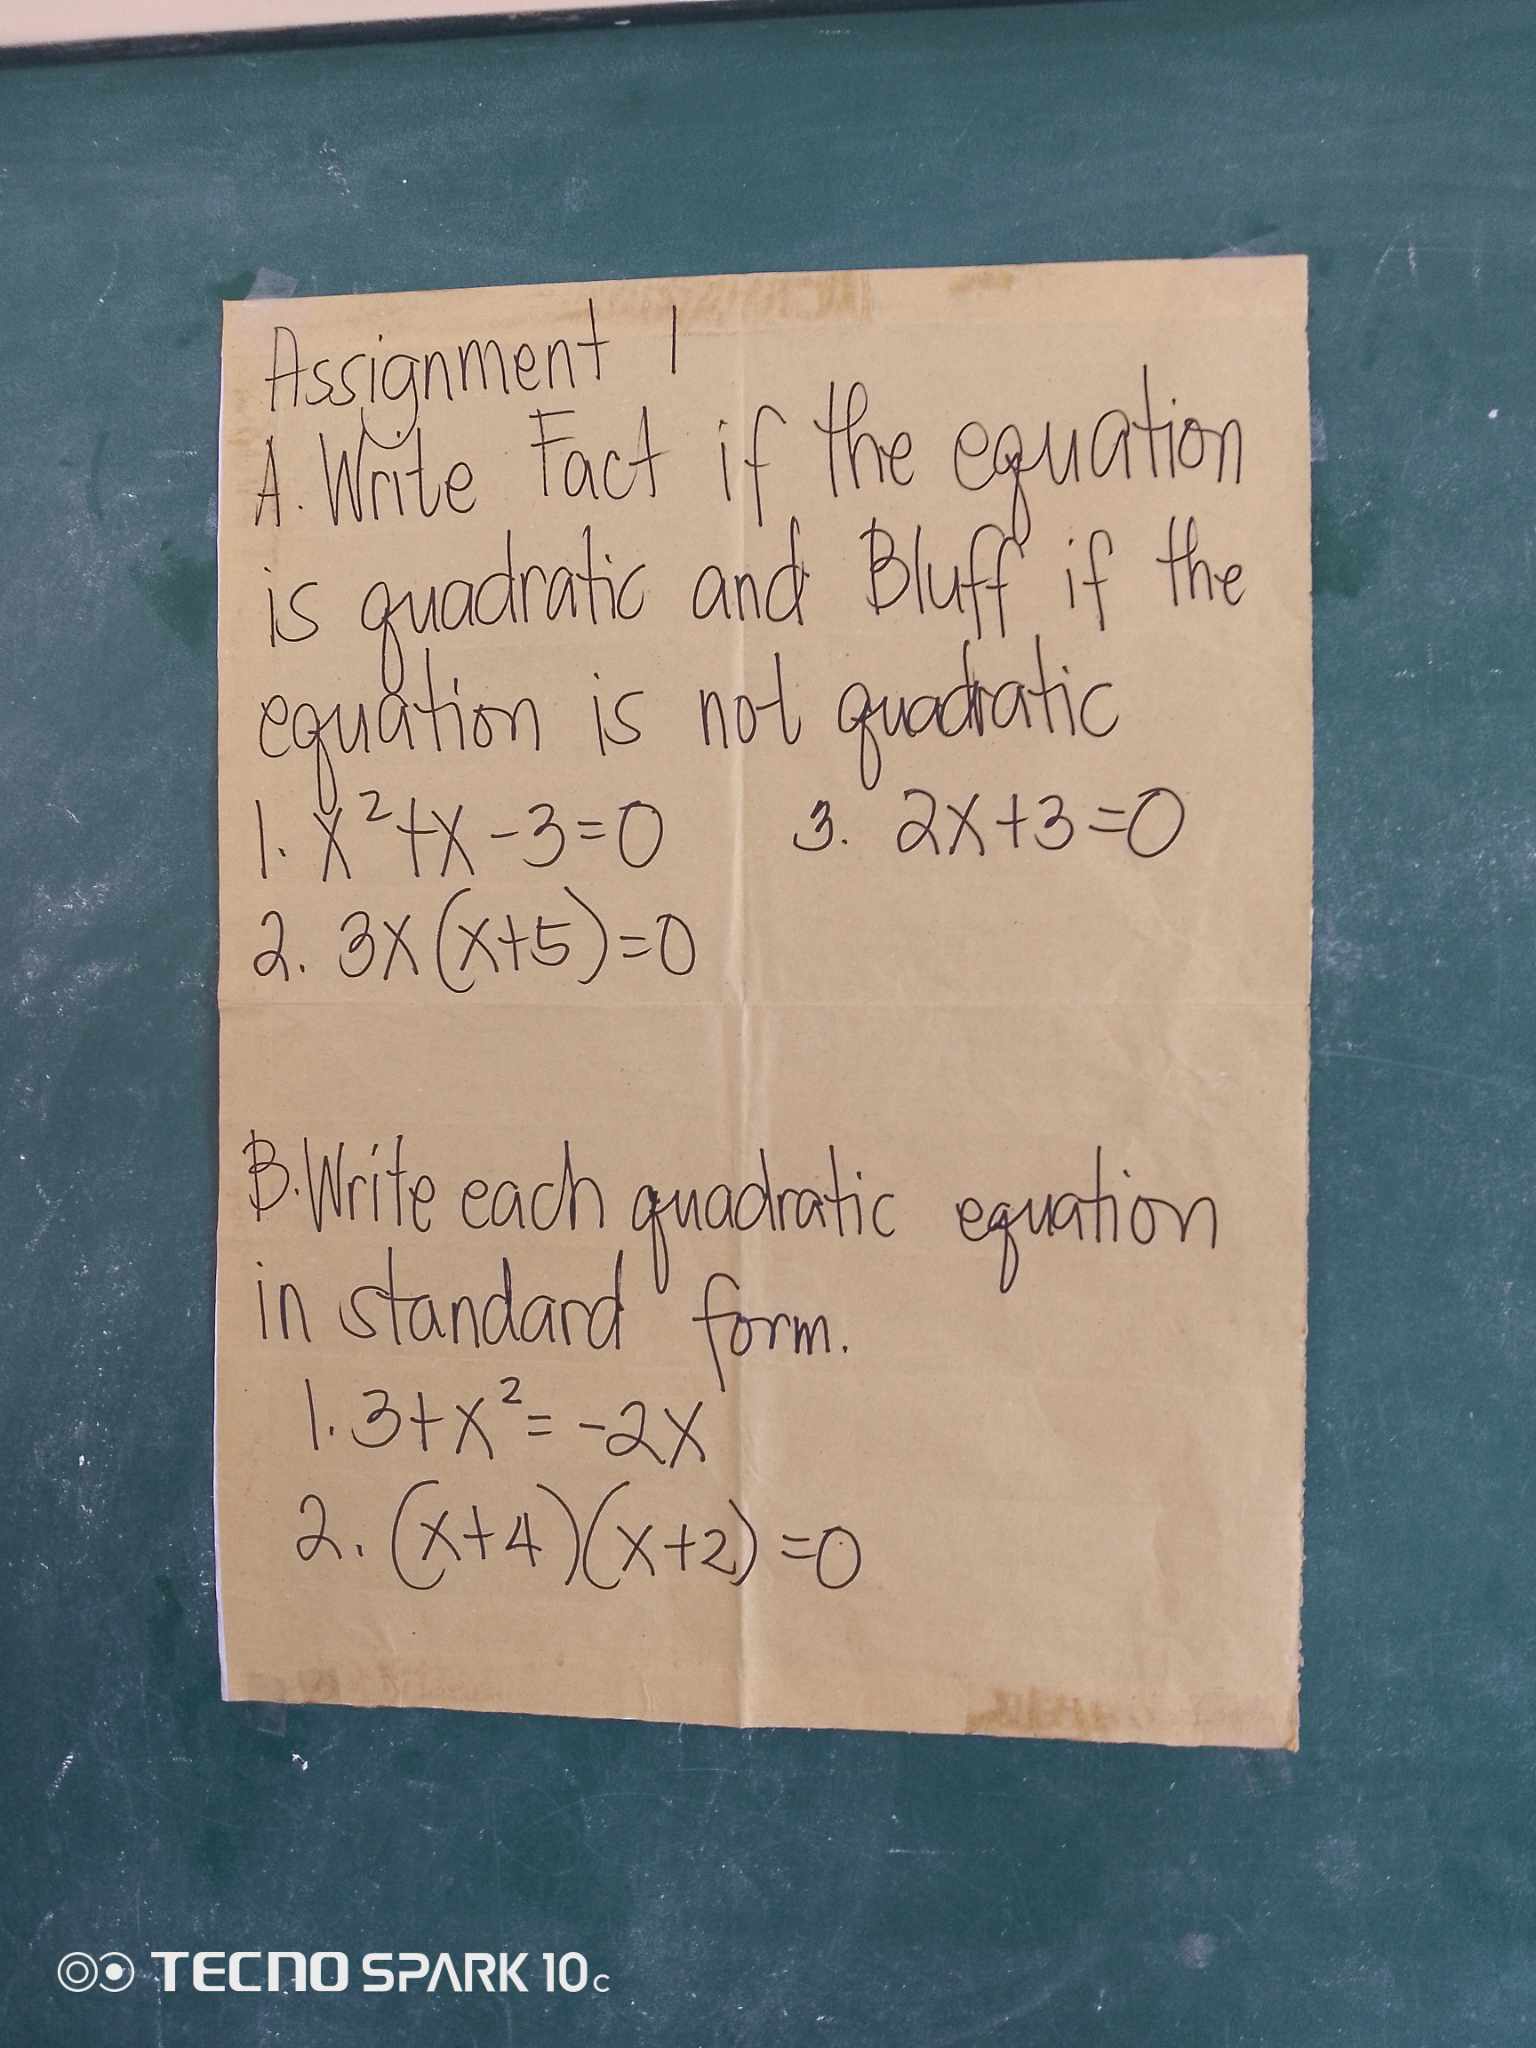 Assignment 1
A. Write Fact if the equation
is quadratic and Bluff if the
equation is not quadratic
1. x²+x-3=0 3. 2x+3=0
2. 3x(x+5)=0
B. Write each quadratic equation
in standard form.
1. 3+x²= -2x
2. (x+4)(x+2)=0
TECNO SPARK 10C